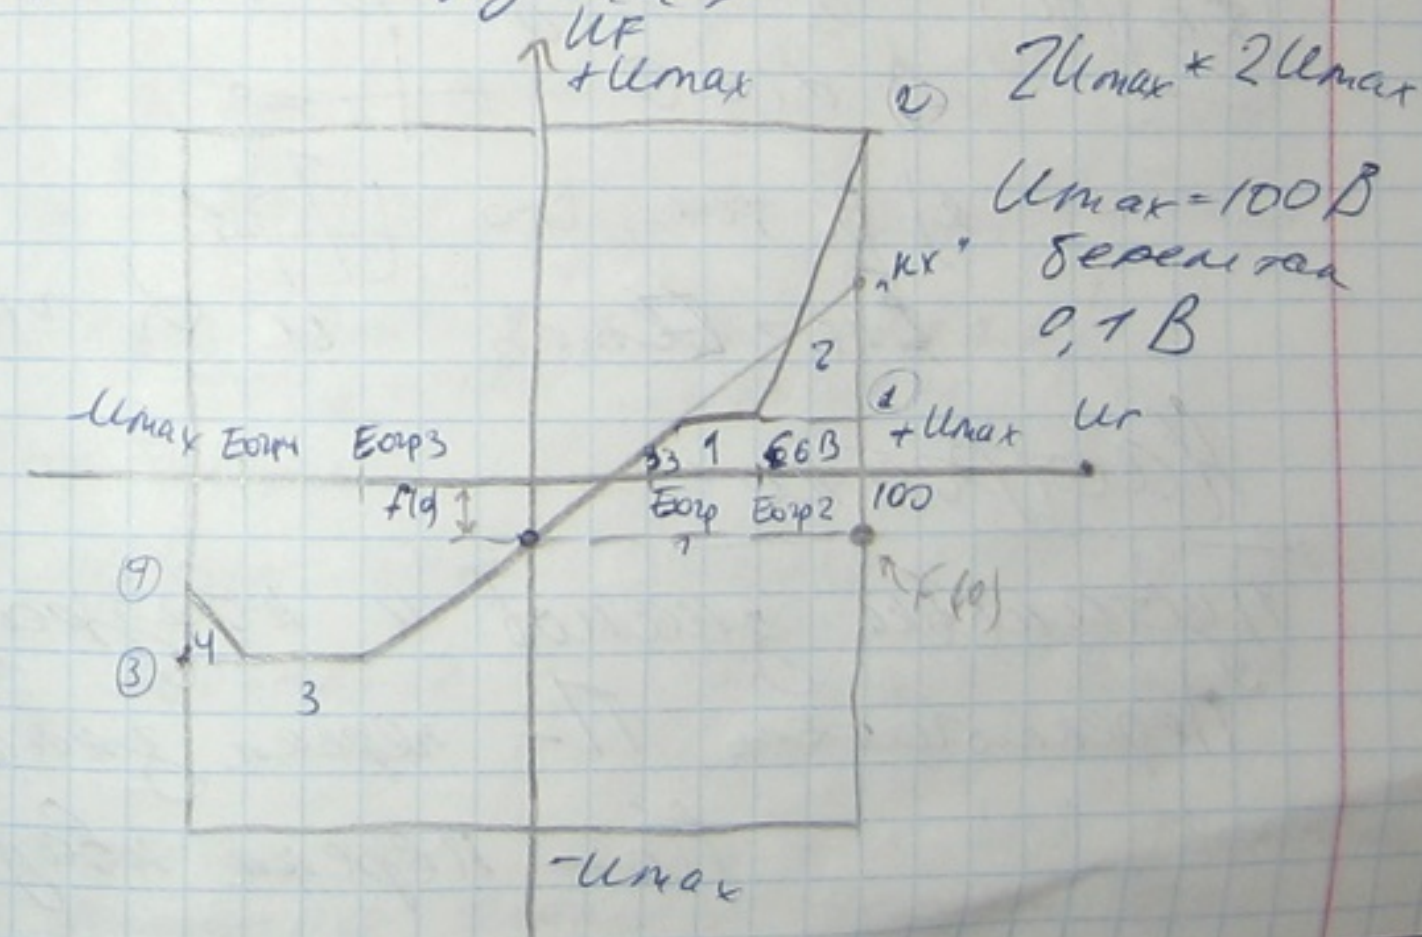 UF
+Umax
2
2Umax * 2Umax
Umax = 100 В
"кх"
берем так
0,1 В
2
1
-Umax
Еогр4
Еогр3
33
1
66В
+Umax
Uг
f(0)
Еогр
1
Еогр2
100
F(0)
4
3
4
3
-Umax